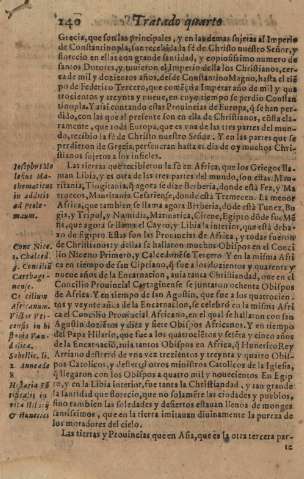 240 Tratado quarto
Grecia, que son las principales, y en las demas sujetas al Imperio
de Constantinopla, fue recebida la fè de Christo nuestro Señor, y
florecio en ellas con grande santidad, y copiosissimo numero de
santos Dotores, y tuuieron el Imperio de los Christianos, cer-
ca de mil y dozientos años, desde Constantino Magno, hasta el tiē
po de Federico Tercero, que començò a Imperar año de mil y qua
trocientos y treynta y nueue, en cuyo tiempo se perdio Constan
tinopla. Y assi contando estas Prouincias de Europa, q̃ se han per
dido, con las que al presente son en ella de Christianos, consta cla-
ramente, que toda Europa, que es vna de las tres partes del mun
do, recibio la fè de Christo nuestro Señor. Y en las partes que se
perdieron de Grecia, perseueran hasta el dia de oy muchos Chris-
tianos sujetos a los infieles.
Las tierras que recibieron la fè en Africa, que los Griegos lla-
man Libia, y es otra de las tres partes del mundo, son estas: Mau-
ritania, Tingitania, q̃ agora se dize Berberia, donde està Fez, y Ma
rruecos, Mauritania Cesariense, donde està Tremecen. La menor
Africa, que tambien se llama agora Berberia, dõde està Tunez, Bu-
gia, y Tripol, y Numidia, Marmarica, Cirene, Egipto dõde fue Mẽ
fis, que agora se llama el Cayro, y Libia la interior, que està deba-
xo de Egipto. Estas son las Prouincias de Africa, que todas fueron
de Christianos y dellas se hallaron muchos Obispos en el Conci
lio Niceno Primero, y Calcedonēse Tercero. Y en la misma Afri
ca en tiempo de san Cipriano, q̃ fue a los dozientos y quarenta y
nueue años de la Encarnacion, auia tanta Christiandad, que en el
Concilio Prouincial Cartaginense se juntaron ochenta Obispos
de Africa. Y en tiempo de san Agustin, que fue a los quatrocien-
tos y treynta años de la Encarnacion, se celebrò en la misma Afri
ca el Concilio Prouincial Africano, en el qual se hallaron con san
Agustin dozientos y diez y siete Obispos Africanos. Y en tiempo
del Papa Hilario, que fue a los quatrocientos y sesenta y cinco años
de la Encarnacion, auia tantos Obispos en Africa, q̃ Hunerico Rey
Arriano desterrò de vna vez trezientos y treynta y quatro Obis-
pos Catolicos, y desterrò otros ministros Catolicos de la Iglesia,
q̃ llegaron con los Obispos a quatro mil y nouecientos. En Egip
to, y en la Libia interior, fue tanta la Christiandad, y tan grande
la santidad que florecio, que no solamẽte las ciudades y pueblos,
sino tambien las soledades y desiertos estauan llenos de monges
santissimos, que en la tierra imitauan diuinamente la pureza de
los moradores del cielo.
Las tierras y Prouincias que en Asia, que es la otra tercera par-
te
Conc Nice.
Carthagi-
nense.
Africanum.